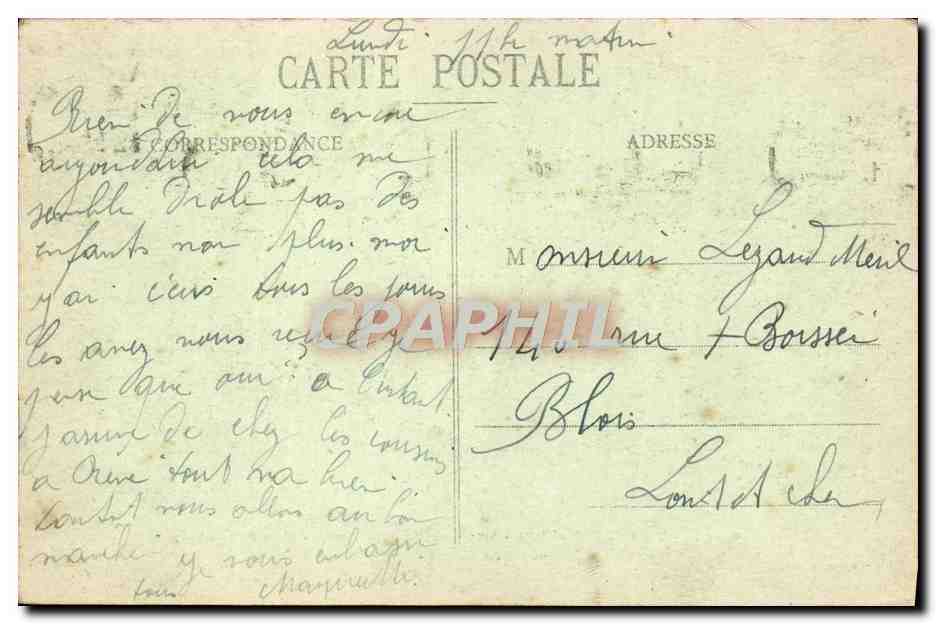 Lundi 11 h matin
CARTE POSTALE
CORRESPONDANCE
Rien de vous encore
aujourdhui cela me
semble drôle pas des
enfants non plus. moi
y ai écris tous les jours
les avez vous reçu je
pense que oui a l'instant
j'arrive de chez les cousins
a tout va bien
tantot nous allons au bon
marché je vous embrasse
tous
ADRESSE
Monsieur Legand
140 rue Boissei
Blois
Loir et cher
CPAPHIL